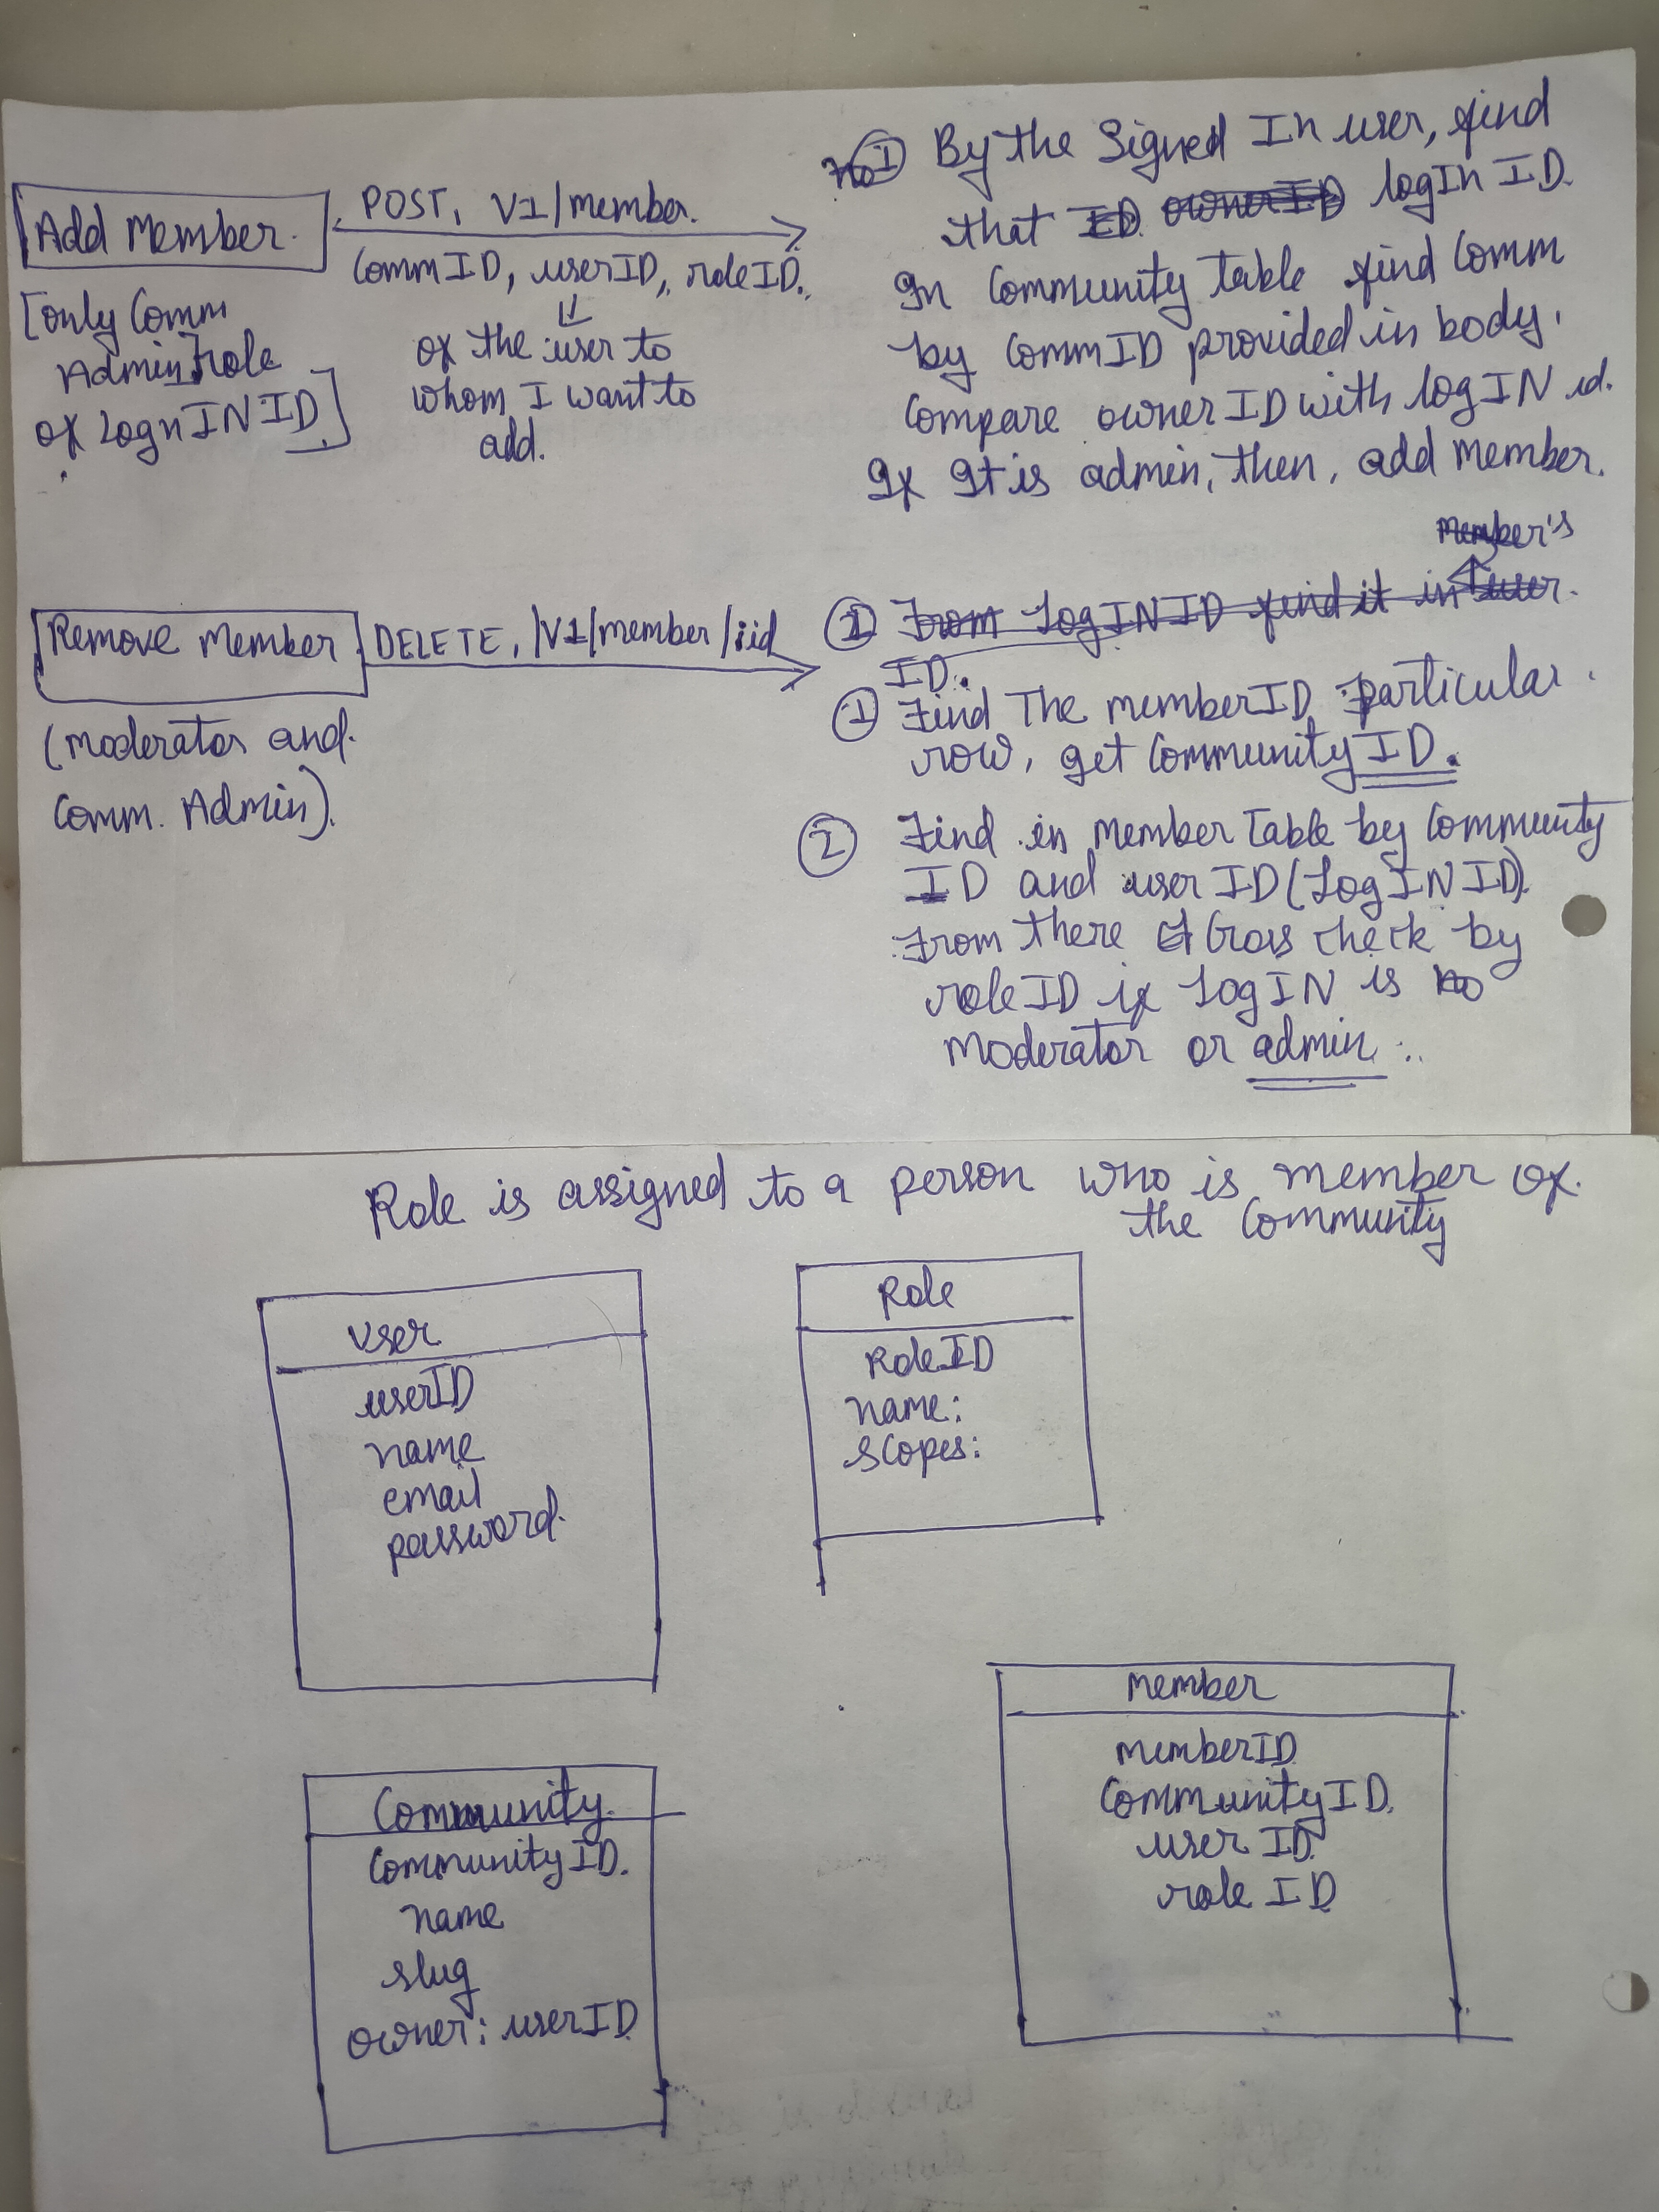 Add Member.
[only Comm
Admin] role
of LognIN ID]
POST, V1/member.
CommID, userID, roleID.
of the user to
whom I want to
add.
① By the Signed In user, find
that ID ownerID logIn ID.
In Community table find Comm
by CommID provided in body.
Compare ownerID with logIN id.
If It is admin, then, add member.
Remove Member
(moderator and
Comm. Admin).
DELETE, /V1/member/:id
member's
① From LogINID find it in user.
ID.
① Find The memberID particular
row, get CommunityID.
② Find in member Table by Community
ID and userID (LogINID).
From there Cross check by
roleID if LogIN is
moderator or admin.
Role is assigned to a person who is member of
the Community
User
userID
name
email
password.
Role
RoleID
name:
scopes:
Community.
CommunityID.
name
slug
owner: userID
member
memberID
CommunityID.
userID
roleID